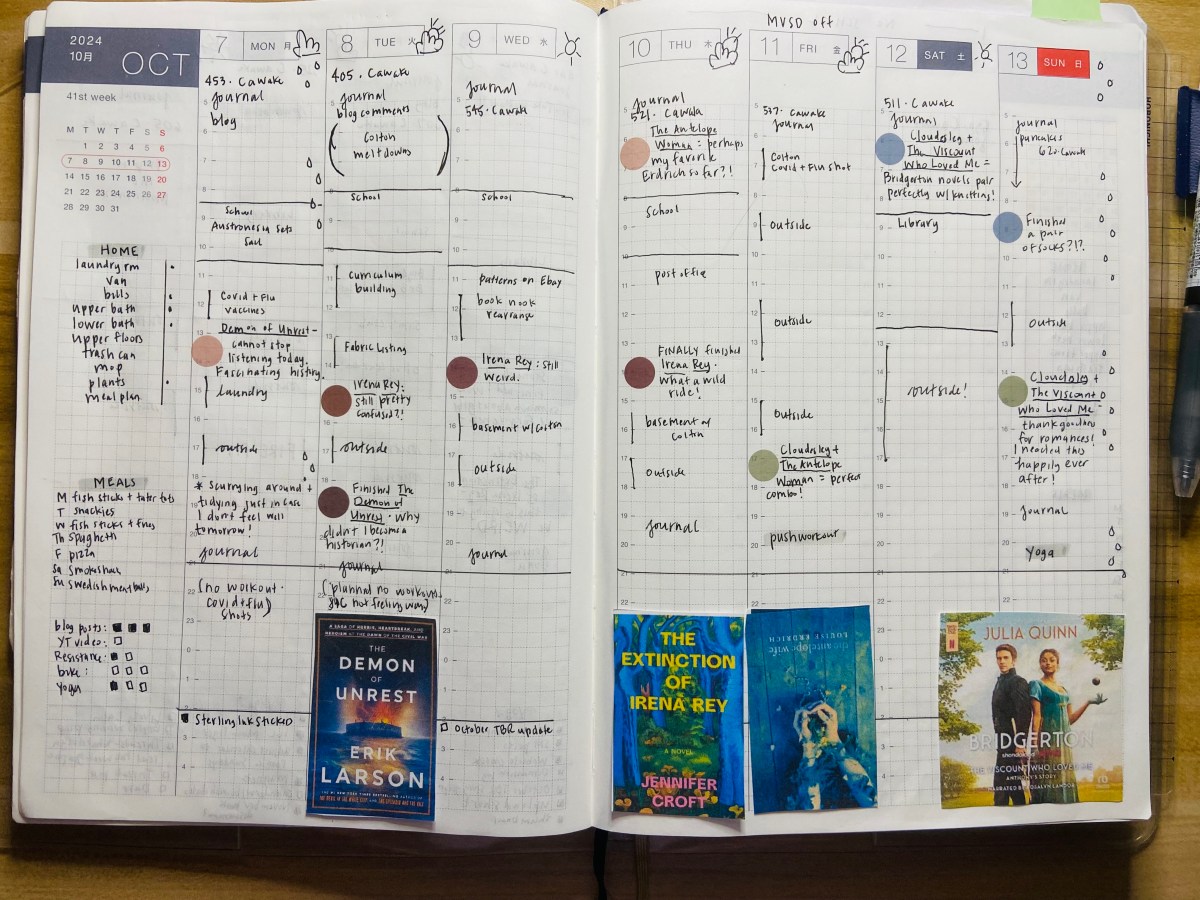 2024
10月
OCT
41st week
M T W T F S S
1 2 3 4 5 6
7 8 9 10 11 12 13
14 15 16 17 18 19 20
21 22 23 24 25 26 27
28 29 30 31
HOME
laundry rm
van
bills
upper bath
lower bath
upper floors
trash can
mop
plants
meal plan
MEALS
M fish sticks + tater tots
T snackies
W fish sticks + fries
Th spaghetti
F pizza
Sa smokeshack
Su swedish meatballs
blog posts:
YT video:
Resistance:
bike:
Yoga
7 MON 月
453. Cawake
journal
blog
School
Austronesia sets
sail
Covid + flu
vaccines
Demon of Unrest -
cannot stop
listening today.
Fascinating history.
laundry
outside
* Scurrying around +
tidying just in case
I don't feel well
tomorrow!
journal
(no workout.
covid + flu)
shots
Sterling Ink Sticked
8 TUE 火
405. Cawake
journal
blog comments
(Colton
meltdowns)
School
Curriculum
building
Fabric listing
Irena Rey:
still pretty
confused?!
outside
Finished The
Demon of
Unrest. Why
didn't I become a
historian?!
journal
(planned no workout
b/c not feeling way)
A SAGA OF HUBRIS, HEARTBREAK, AND
HEROISM AT THE DAWN OF THE CIVIL WAR
THE
DEMON
OF
UNREST
ERIK
LARSON
9 WED 水
journal
545. Cawake
School
patterns on Ebay
book nook
rearrange
Irena Rey: still
weird.
basement w/ Colton
outside
journal
October TBR update
10 THU 木
journal
521. Cawake
The Antelope
Woman = perhaps
my favorite
Erdrich so far?!
School
post office
FINALLY finished
Irena Rey.
What a wild
ride!
basement w/
Colton
outside
journal
THE
EXTINCTION
OF
IRENA REY
A NOVEL
JENNIFER
CROFT
MVSD off
11 FRI 金
517. Cawake
journal
Colton
Covid + Flu shot
outside
outside
outside
Cloudesley +
The Antelope
Woman = perfect
combo!
push workout
the antelope wife
LOUISE ERDRICH
12 SAT 土
511. Cawake
journal
Cloudesley +
The Viscount
Who Loved Me =
Bridgerton novels pair
perfectly w/ knitting!
Library
outside!
13 SUN 日
journal
pancakes
620. Cawake
Finished
a pair
of socks?!?
outside
Cloudesley +
The Viscount
Who Loved Me -
thank goodness
for romances!
I needed this
happily ever
after!
journal
Yoga
JULIA QUINN
BRIDGERTON
THE VISCOUNT WHO LOVED ME
ANTHONY'S STORY
NARRATED BY ROSALYN LANDOR